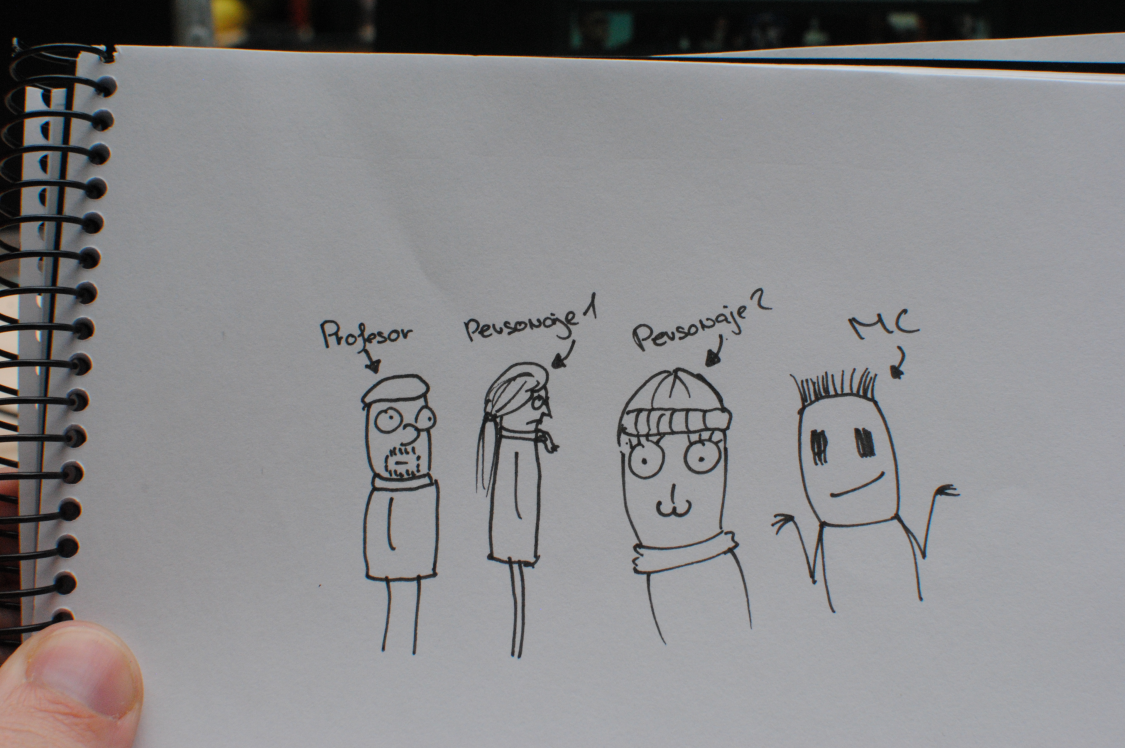 Profesor
Personaje 1
Personaje 2
MC